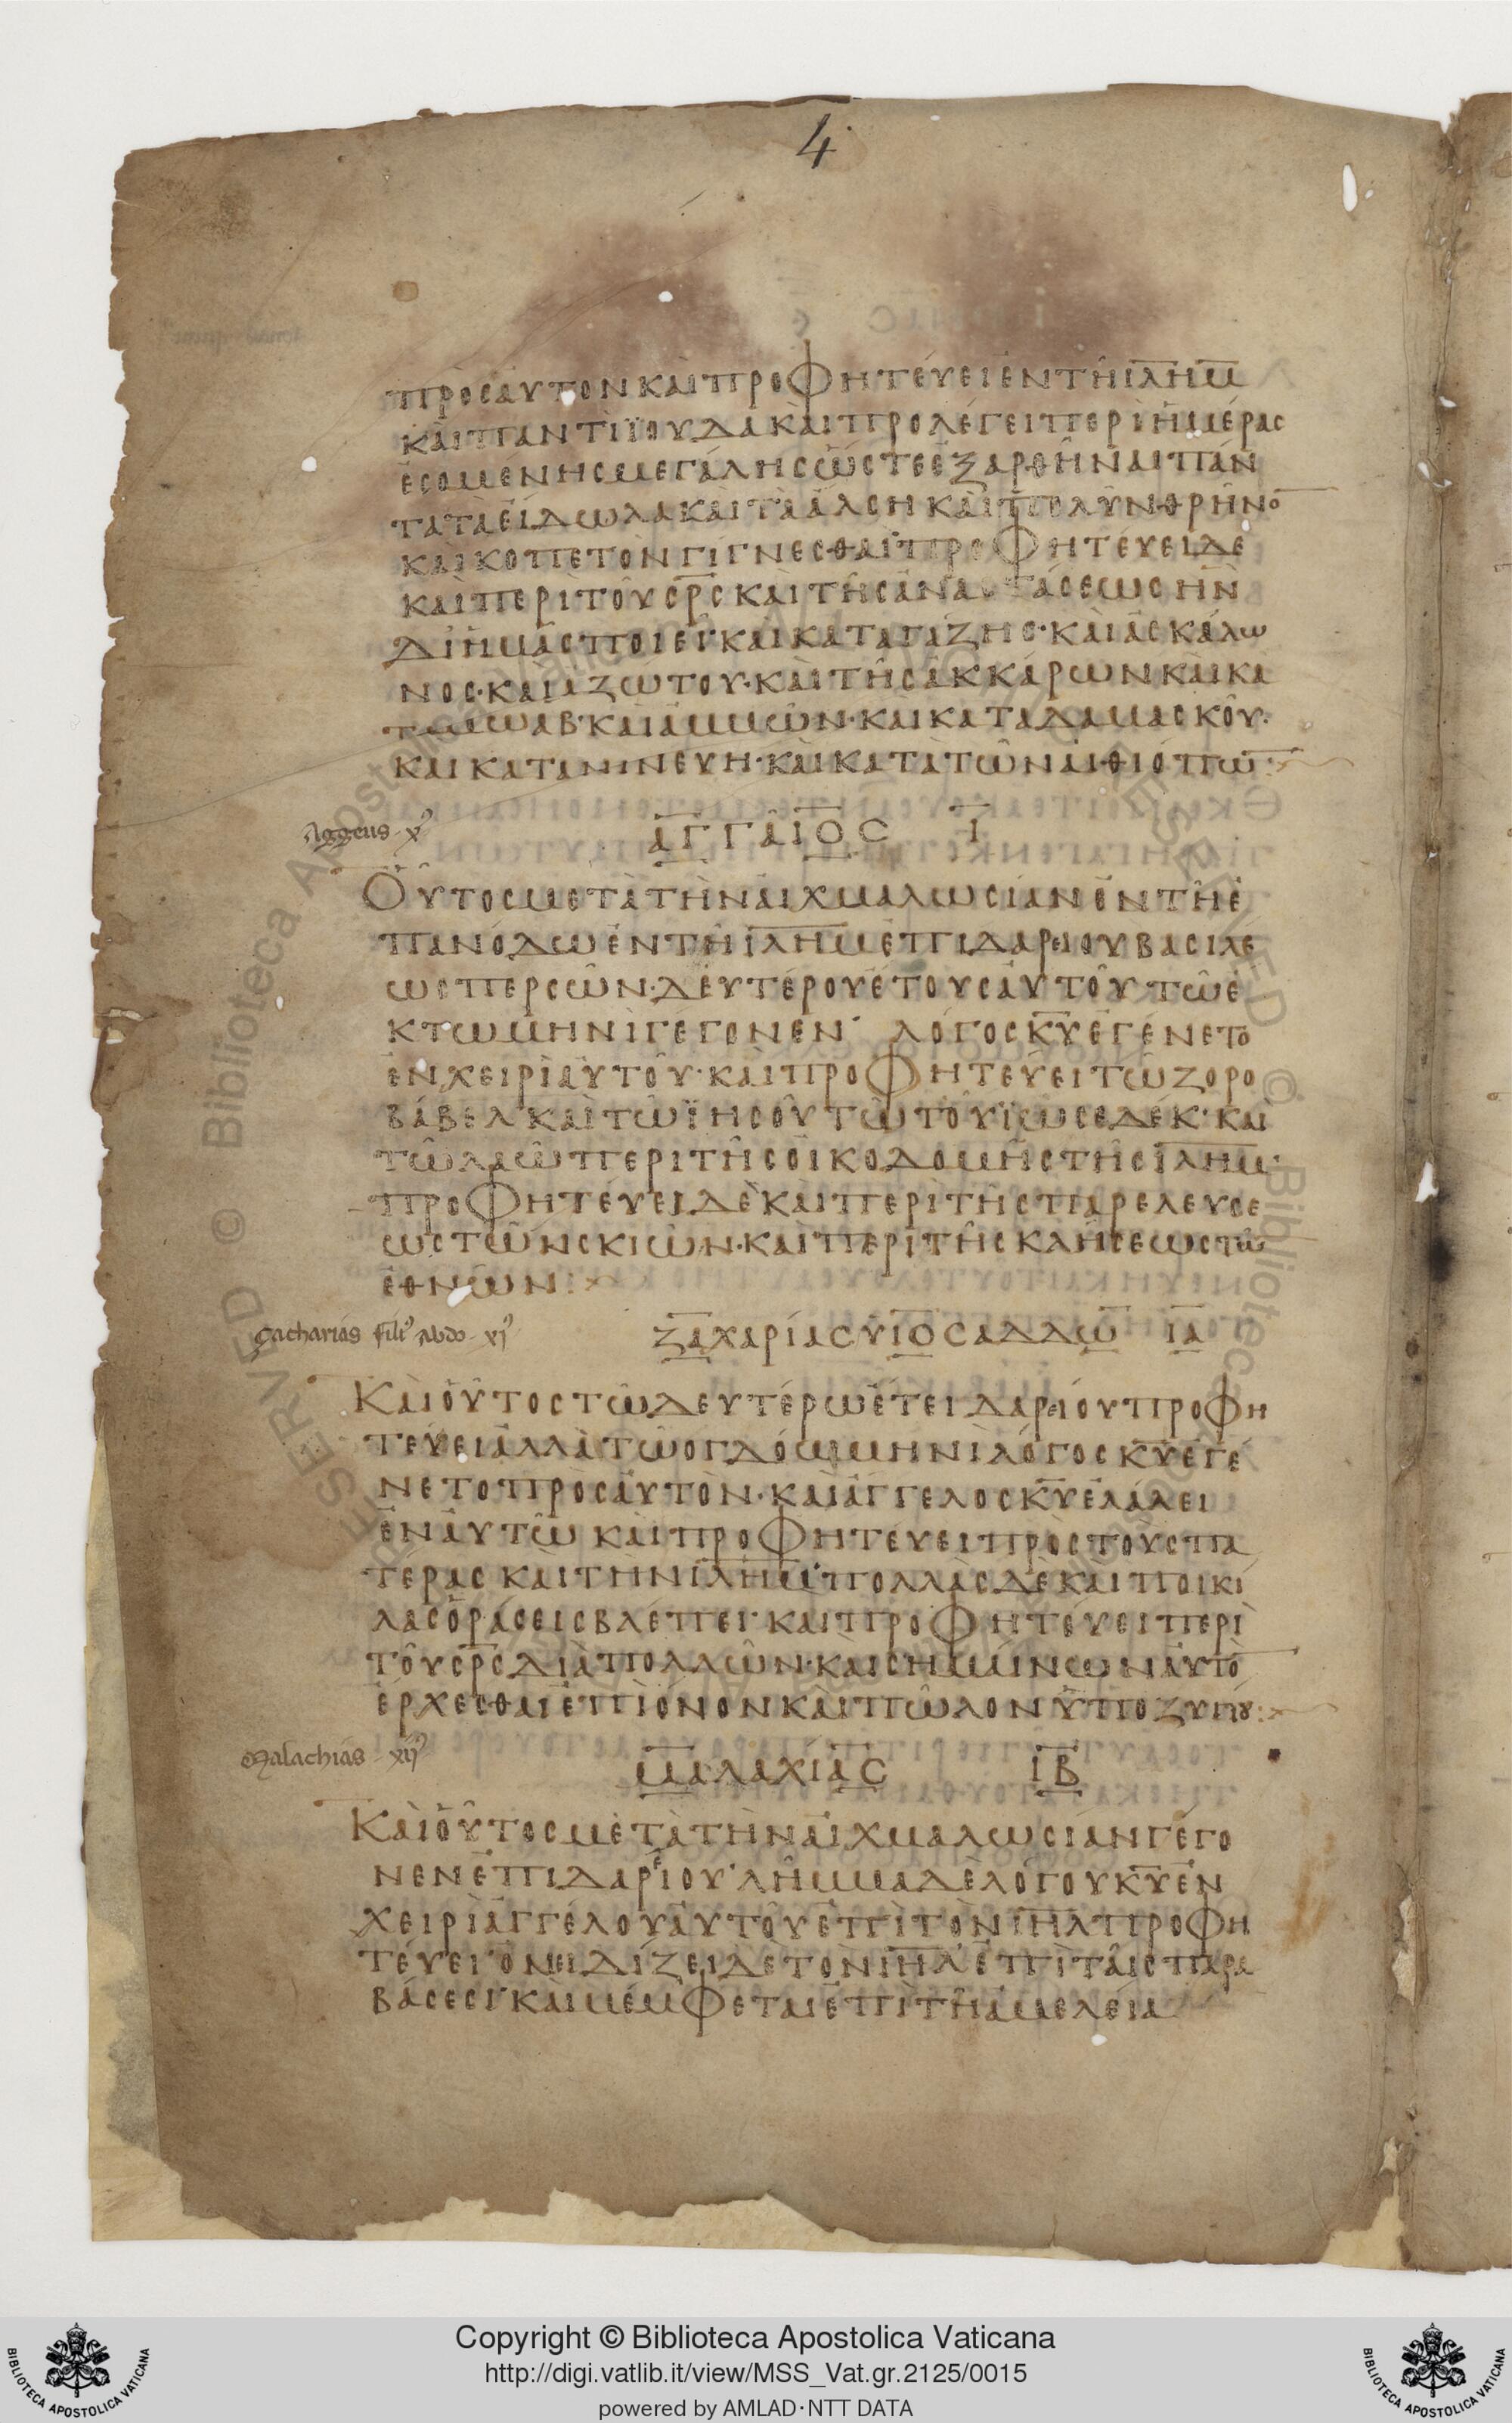 4
πρὸσαυτονκαὶπροφητέυειἐντῆιλημ
καὶπαντὶϊουδακαὶπρολέγειπερὶἡμέρας
ἐσομένησμεγάλησὥστεἐξαρθῆναιπάν
τατὰεἴδωλακαὶτὰἄλσηκαὶπολὺνθρῆνο
καὶκοπετὸνγίγνεσθαι·προφητέυειδὲ
καὶπερὶτοῦσρσκαὶτῆσἀναστάσεωσἣν
δἰἡμᾶσποιεῖ·καὶκαταγάζησ·καὶἀσκάλω
νοσ·καὶαζώτου·καὶτῆσἀκκάρωνκαὶκα
τὰμωαβ·καὶἀμμῶν·καὶκαταδαμασκοῦ·
καικατανινευη·καὶκατὰτῶναἰθιόπω
Aggeus x
ἀγγαῖος ι
Οὗτοσμετὰτὴναἰχμαλωσίανἐντῆἐ
πανόδωἐντῆιλημἐπιδαρειουβασιλε
ωσπερσῶν·δευτέρουἔτουσἀυτοῦτῶἑ
κτωμηνὶγέγονεν· λόγοσκυἐγένετο
ἐνχειρὶἀυτοῦ·καὶπροφητέυειτῶζορο
βάβελκαὶτῶϊησοῦτῶτοῦϊωσεδέκ·καὶ
τῶλαῶπερὶτῆσὀικοδομῆστῆσιλημ·
προφητέυειδὲκαὶπερὶτῆσπαρελευσε
ωστῶνσκιῶν·καὶπερὶτῆσκλήσεωστῶ
ἐθνῶν:
Zacharias fili abdo xj
ζαχαρίας υἱος αδδω ια
Καὶοὗτοστῶδευτέρωἔτειδαρείουπροφη
τέυειἀλλὰτῶογδόωμηνὶλόγοσκυἐγέ
νετοπρὸσἀυτὸν·καὶἄγγελοσκυἐλάλει
ἐνἀυτῶκαὶπροφητέυειπρὸστοὺσπα
τέρασκαὶτὴνιλημ·πολλὰσδὲκαὶποικί
λασὁράσεισβλέπει·καὶπροφητέυειπερὶ
τοῦσρσδιὰπολλῶν·καὶσημάινωναυτὸ
ἔρχεσθαιἐπιόνονκαὶπῶλονὑποζυγίου:
Malachias xij
μαλαχίας ιβ
Καὶοὗτοσμετὰτὴναἰχμαλωσίανγέγο
νενἐπιδαρείου·λῆμμαδὲλόγουκυἐν
χειρὶἀγγέλουἀυτοῦἐπὶτὸνιηλπροφη
τέυει·ὀνειδίζειδὲτὸνιηλἐπὶτᾶισπαρα
βάσεσι·καὶμέμφεταιἐπὶτῆἀμελεία
Copyright © Biblioteca Apostolica Vaticana
http://digi.vatlib.it/view/MSS_Vat.gr.2125/0015
powered by AMLAD·NTT DATA
BIBLIOTECA APOSTOLICA VATICANA
BIBLIOTECA APOSTOLICA VATICANA